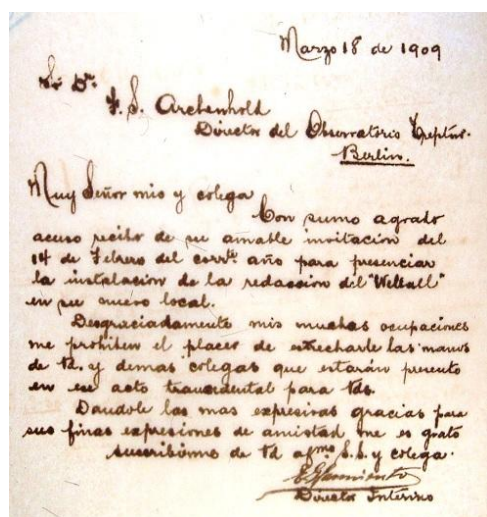 Marzo 18 de 1909
Sr Dr.
F. S. Archenhold
Director del Observatorio Treptow.
Berlin.
Muy Señor mio y colega
Con sumo agrado
acuso recibo de su amable invitacion del
14 de Febrero del corrte año para presenciar
la instalacion de la redaccion del "Weltall"
en su nuevo local.
Desgraciadamente mis muchas ocupaciones
me prohiben el placer de estrecharle las manos
de Vd. y demas colegas que estarán presente
en ese acto trascidental para Vds.
Dandole las mas expresivas gracias para
sus finas expresiones de amistad me es grato
suscribirme de Vd afmo S.S. y colega.
Sarmiento
Director Interino